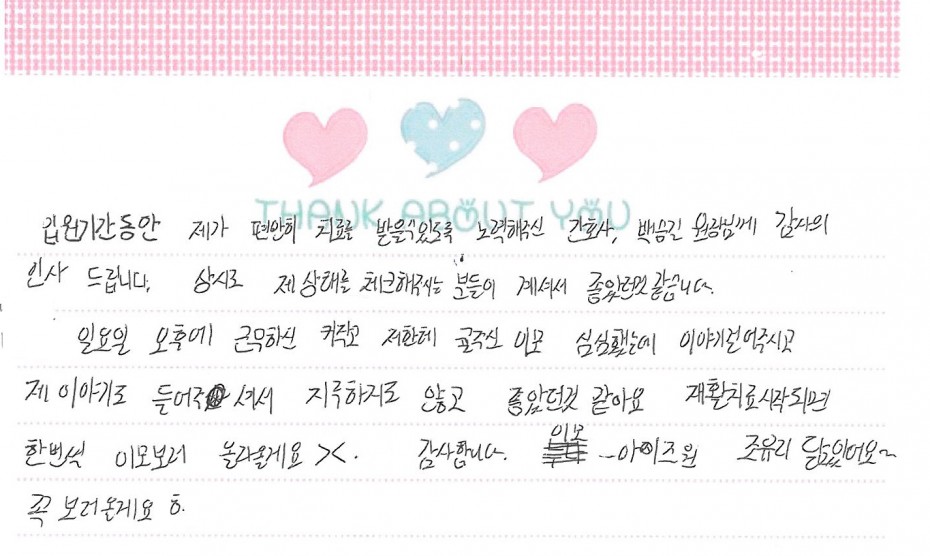 THANK ABOUT YOU
입원기간동안 제가 편안히 치료를 받을수있도록 노력해주신 간호사, 원장님께 감사의
인사 드립니다. 상시로 제 상태를 체크해주시는 분들이 계셔서 좋았던것 같습니다.
일요일 오후에 근무하신 키작고 저한테 귤주신 이모 심심했는데 이야기걸어주시고
제 이야기도 들어주셔서 지루하지도 않고 좋았던것 같아요 재활치료시작되면
한번씩 이모보러 올라올게요 ><. 감사합니다. 이모 ~아이즈원 조유리 닮았어요~
꼭 보러올게요 ㅎ.